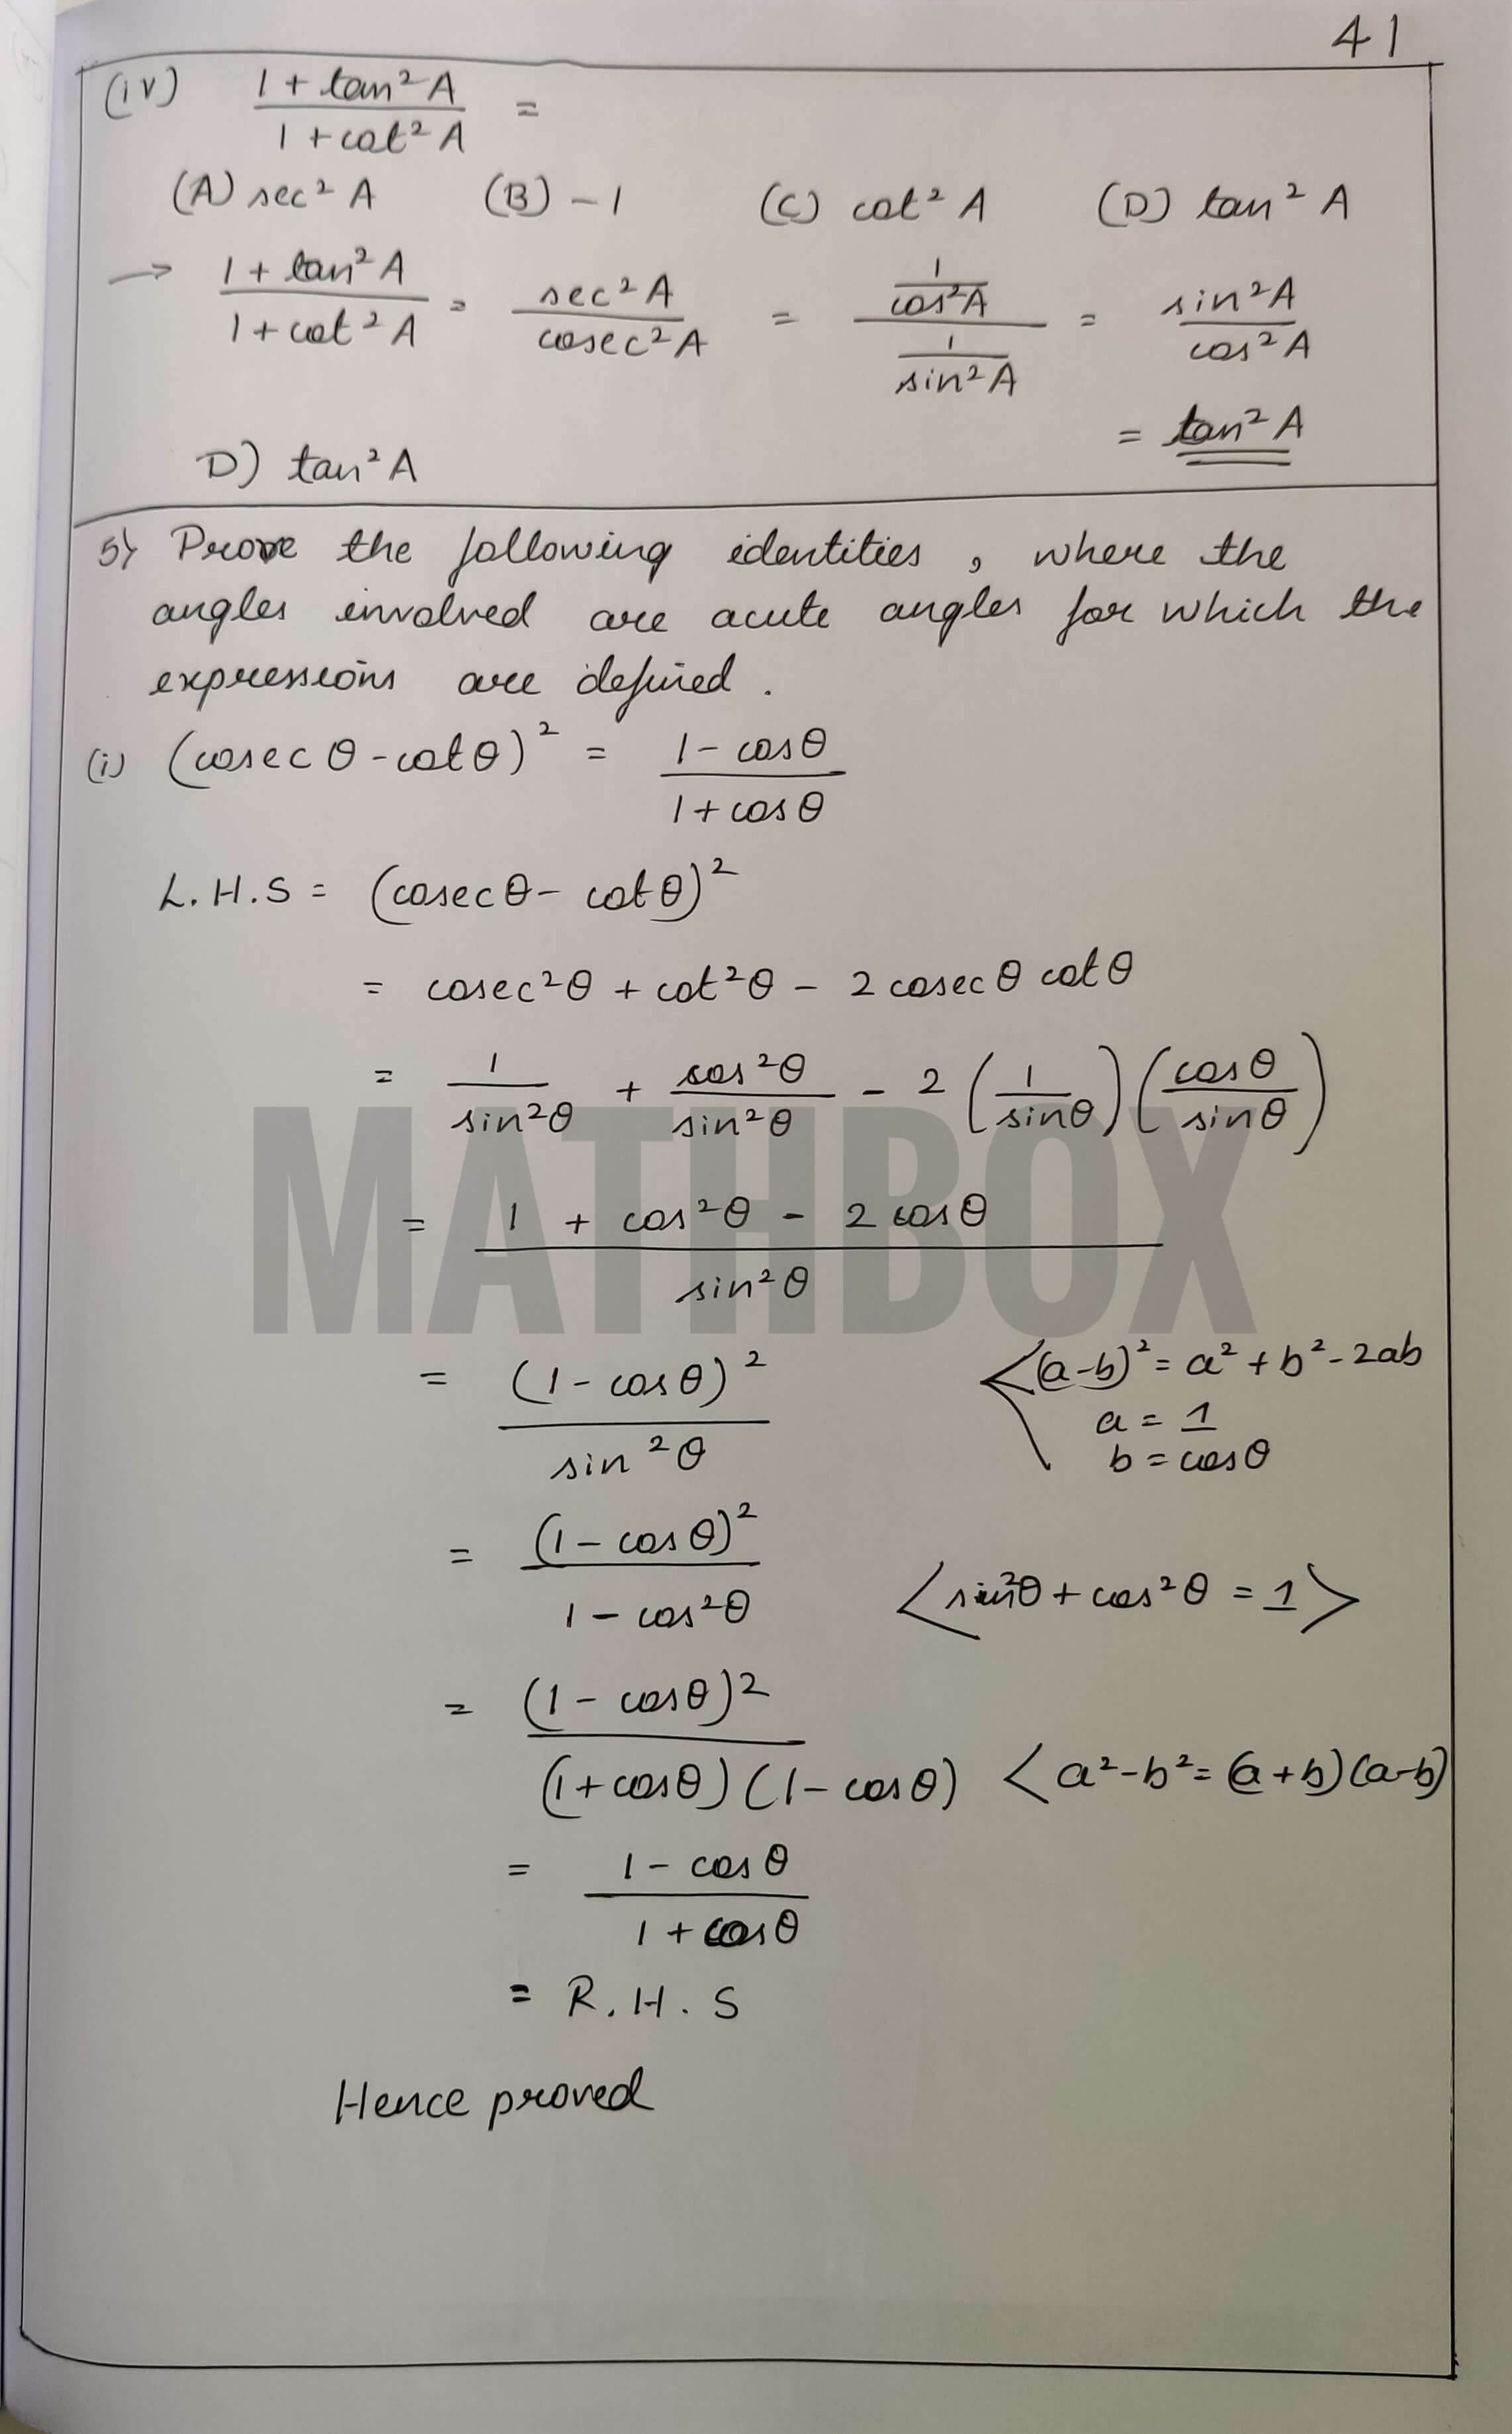 41
(iv) (1 + tan² A)/(1 + cot² A) =
(A) sec² A (B) -1 (C) cot² A (D) tan² A
→ (1 + tan² A)/(1 + cot² A) = (sec² A)/(cosec² A) = (1/cos² A)/(1/sin² A) = (sin² A)/(cos² A)
= tan² A
D) tan² A
5) Prove the following identities, where the
angles involved are acute angles for which the
expressions are defined.
(i) (cosec θ - cot θ)² = (1 - cos θ)/(1 + cos θ)
L.H.S = (cosec θ - cot θ)²
= cosec² θ + cot² θ - 2 cosec θ cot θ
= 1/(sin² θ) + (cos² θ)/(sin² θ) - 2 (1/sin θ) (cos θ/sin θ)
MATHBOX
= (1 + cos² θ - 2 cos θ)/(sin² θ)
= (1 - cos θ)²/(sin² θ) <(a-b)² = a² + b² - 2ab
a = 1
b = cos θ
= (1 - cos θ)²/(1 - cos² θ) <sin² θ + cos² θ = 1>
= (1 - cos θ)²/((1 + cos θ) (1 - cos θ)) < a² - b² = (a + b) (a - b)
= (1 - cos θ)/(1 + cos θ)
= R.H.S
Hence proved